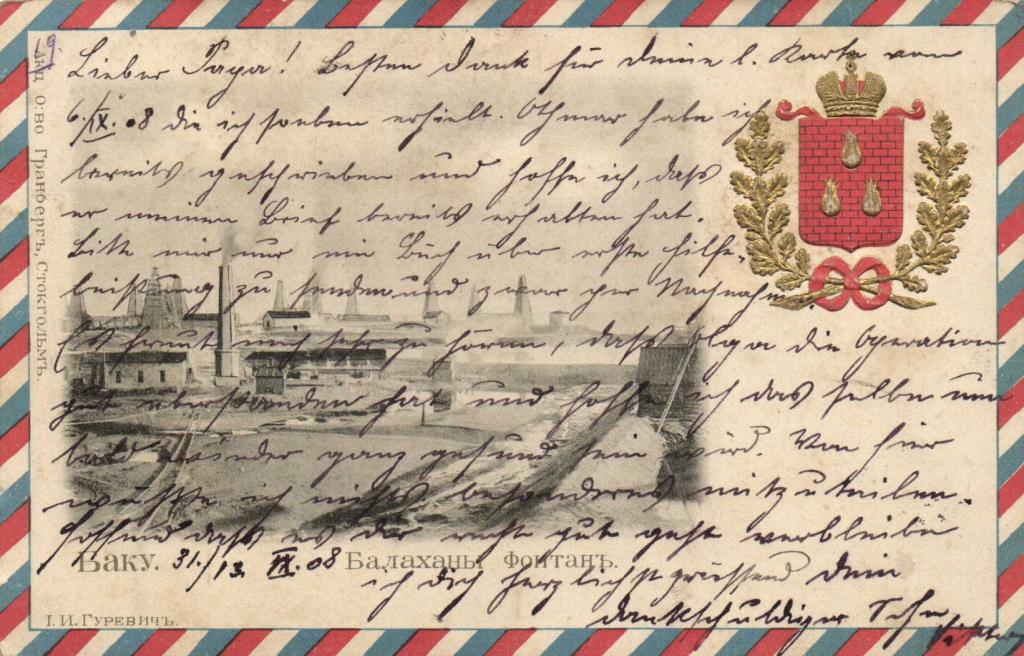 Lieber Papa! Besten Dank für Deine l. Karte vom
6./IX. 08 die ich soeben erhielt. Othmar habe ich
bereits geschrieben und hoffe ich, daß
er meinen Brief bereits erhalten hat.
Bitte mir nur ein Buch über erste Hilfe-
leistung zu senden und zwar per Nachnahme.
Es freut mich sehr zu hören, daß Olga die Operation
gut überstanden hat und hoffe ich das selbe nun
bald wieder ganz gesund sein wird. Von hier
wüßte ich nichts besonderes mitzuteilen.
Hoffend daß es Dir recht gut geht verbleibe
ich Dich herzlichst grüssend Dein
dankschuldiger Sohn
Баку. 31./13. IX. 08 Балаханы Фонтанъ.
І. И. Гуревичъ.
Акц О:во Гранбергъ, Стокгольмъ.